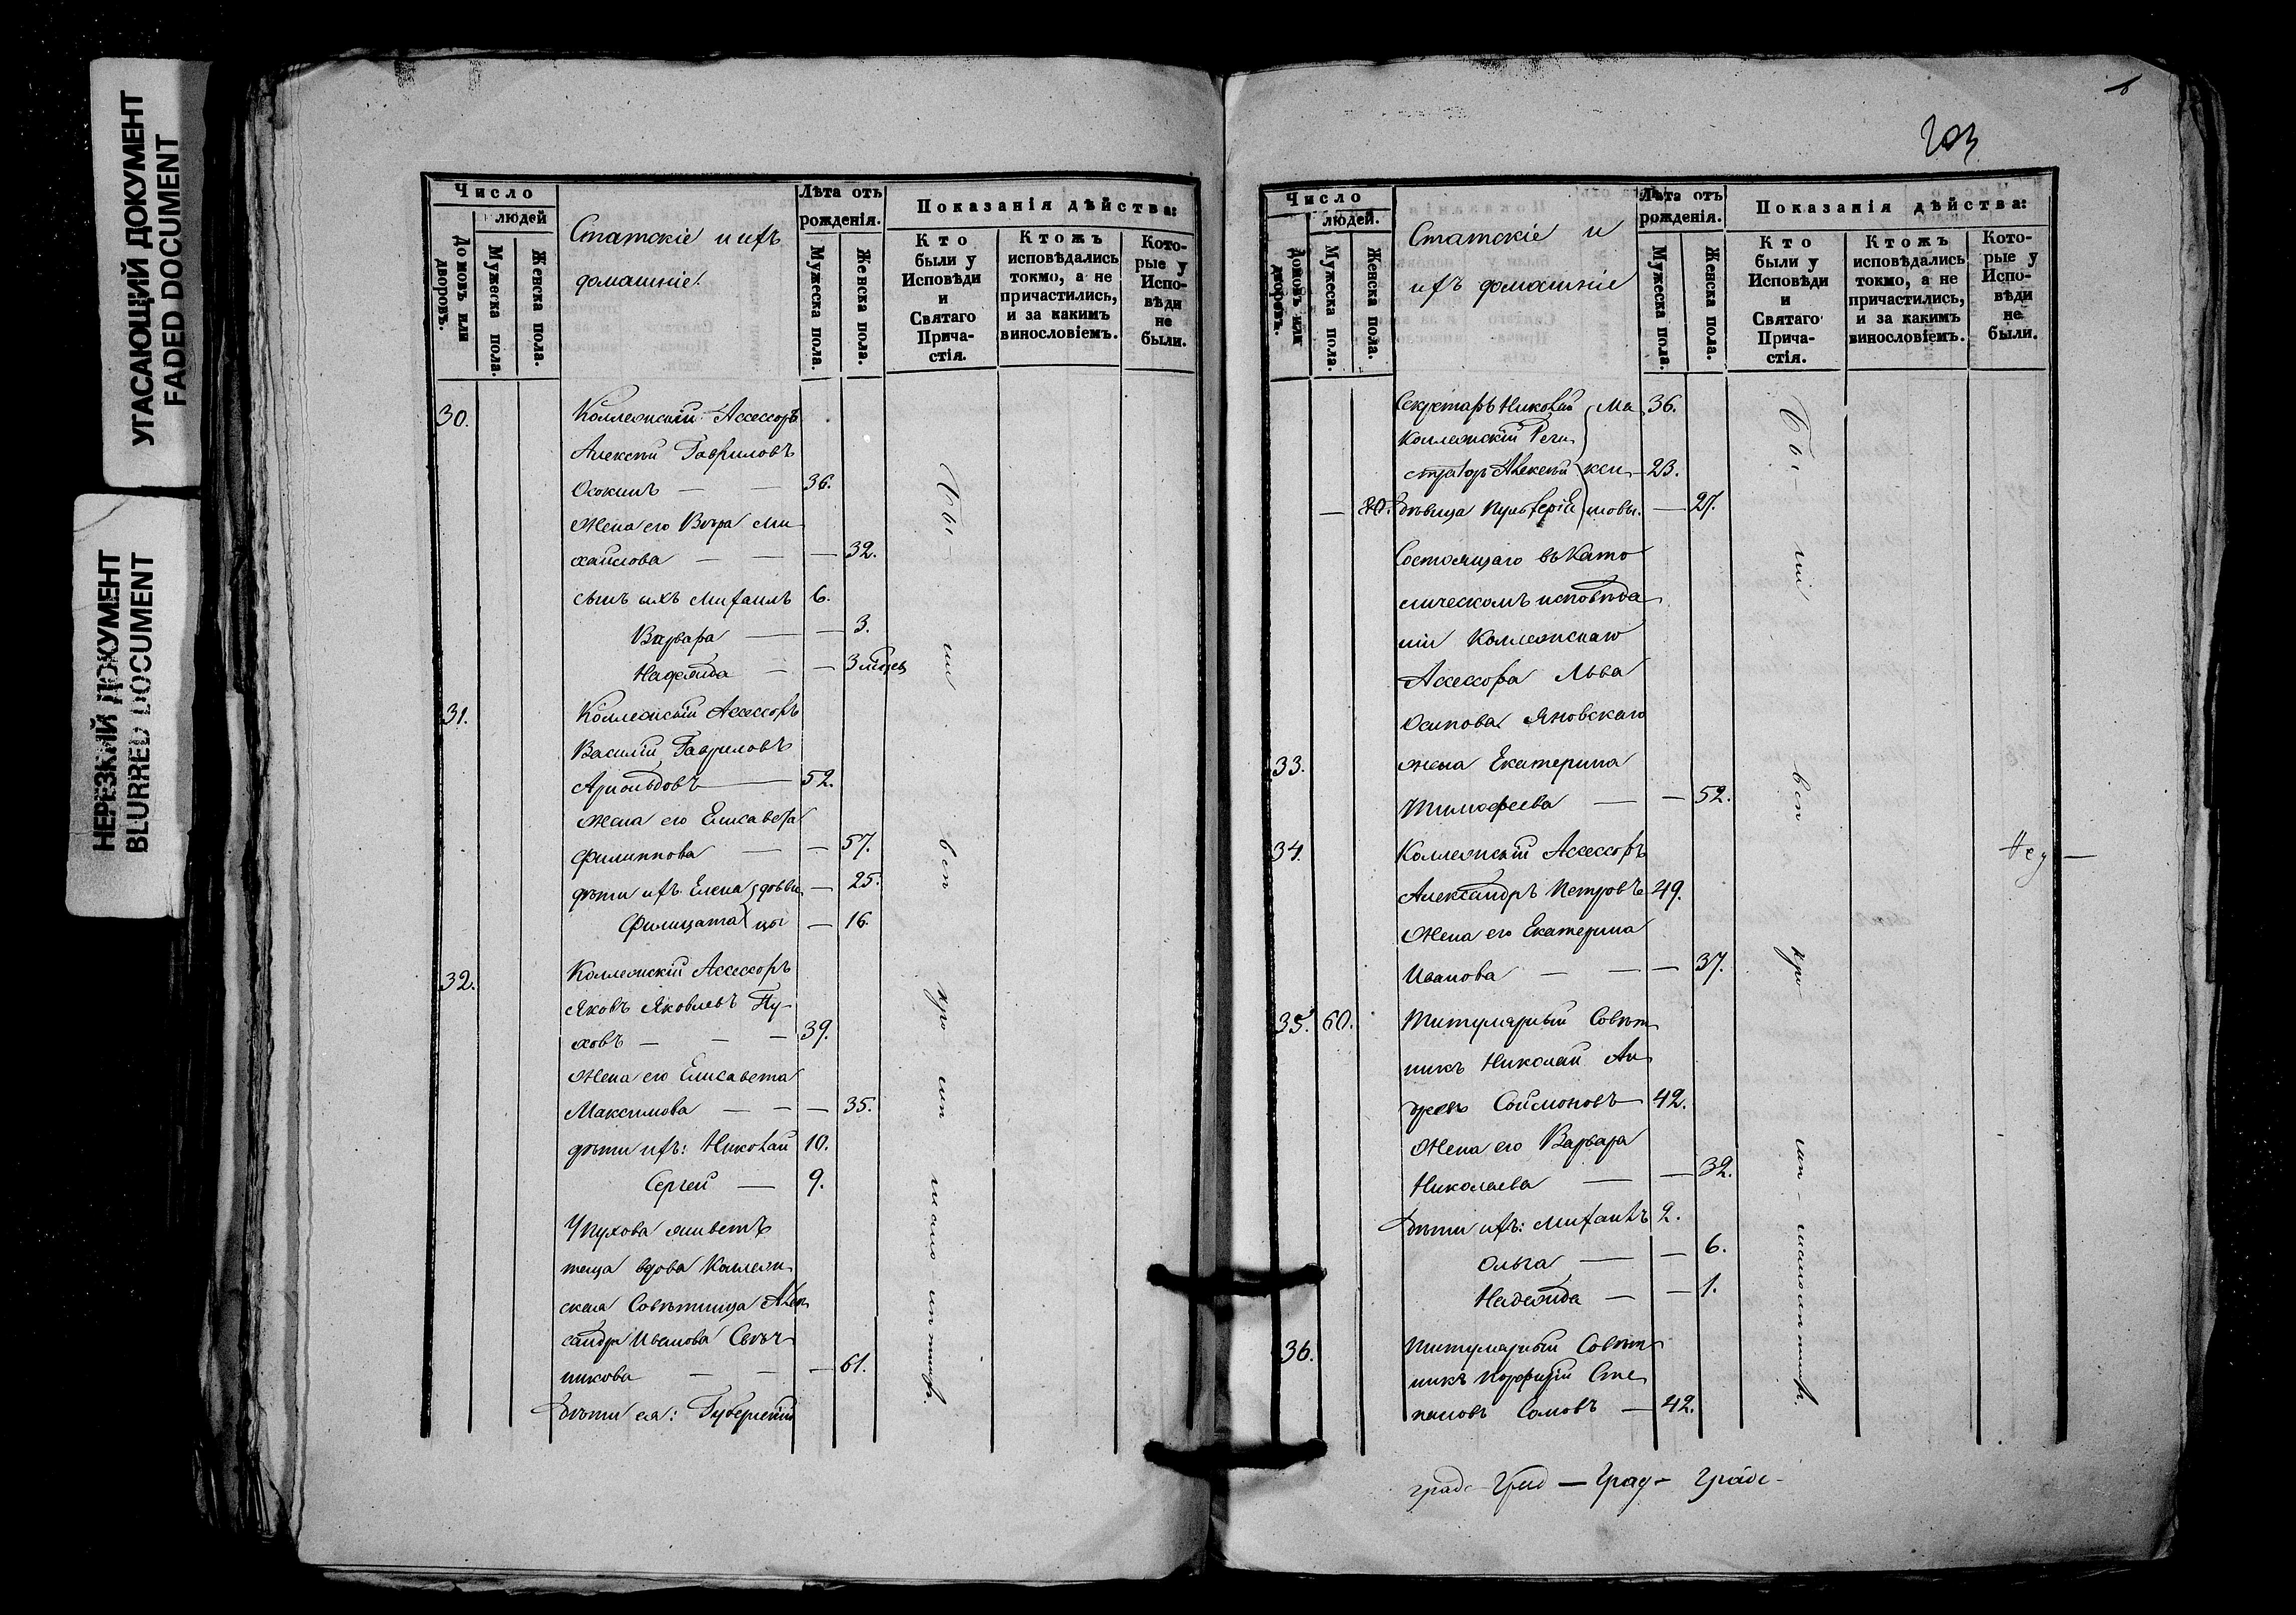 УГАСАЮЩИЙ ДОКУМЕНТ
FADED DOCUMENT
НЕРЕЗКИЙ ДОКУМЕНТ
BLURRED DOCUMENT
Число
людей
Домовъ или дворовъ.
Мужеска пола.
Женска пола.
Статскіе и ихъ
домашніе.
Лѣта отъ
рожденія.
Мужеска пола.
Женска пола.
Показанія дѣйства:
Кто
были у
Исповѣди
и
Святаго
Прича-
стія.
Ктожъ
исповѣдались
токмо, а не
причастились,
и за какимъ
винословіемъ.
Кото-
рые у
Испо-
вѣди
не
были.
30. Коллежскій Ассессоръ
Алексѣй Гавриловъ
Осокинъ — — 36.
Жена его Вѣра Ми
хайлова — — — 32.
сынъ ихъ Михаилъ 6.
Варвара — — 3.
Надежда — — 3 мѣсец
31. Коллежскій Ассессоръ
Василій Гавриловъ
Арнольдовъ — 52.
Жена его Елисавета
Филиппова — — 57.
дѣти ихъ Елена } дѣви — 25.
Филицата } цы — 16.
32. Коллежскій Ассессоръ
Яковъ Яковлевъ Пу-
ховъ — — — 39.
Жена его Елисавета
Максимова — — — 35.
дѣти ихъ: Николай 10.
Сергей — 9.
У Пухова живетъ
теща вдова Коллеж
ская Совѣтница Алек
сандра Иванова Свѣч
никова — — — 61.
Дѣти ея: Губернскій
Бы-
ли
всп
при
203
Число
людей.
Домовъ или дворовъ.
Мужеска пола.
Женска пола.
Статскіе и
ихъ домашніе
Лѣта отъ
рожденія.
Мужеска пола.
Женска пола.
Показанія дѣйства:
Кто
были у
Исповѣди
и
Святаго
Прича-
стія.
Ктожъ
исповѣдались
токмо, а не
причастились,
и за какимъ
винословіемъ.
Кото-
рые у
Испо-
вѣди
не
были.
Секретарь Николай } Ма 36.
Коллежскій Реги
страторъ Алексѣй } кси — 23.
Дѣвица Пульхерія } мовы. — 27.
Состоящаго въ Като
лическомъ исповѣда
ніи Коллежскаго
Ассессора Льва
Осипова Яновскаго
33. жена Екатерина
Тимофеева — — 52.
34. Коллежскій Ассессоръ
Александръ Петровъ 49.
Жена его Екатерина
Иванова — — — 37.
35. 60. Титулярный Совѣт
никъ Николай Ан
дреевъ Соймоновъ — 42.
Жена его Варвара
Николаева — — 32.
Дѣти ихъ: Михаилъ 9.
Ольга — — 6.
Надежда — — 1.
36. Титулярный Совѣт
никъ Порфирій Сте
пановъ Сомовъ — 42.
Бы-
ли
град- Град — Град- Градс-